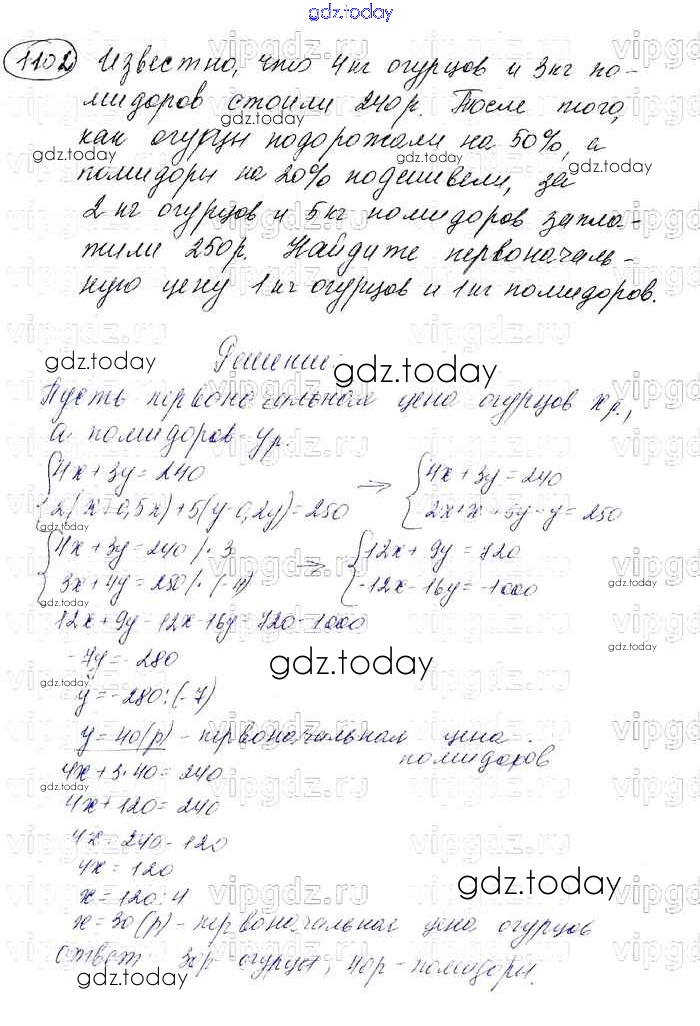 gdz.today
1102 Известно, что 4 кг огурцов и 3 кг по-
мидоров стоили 240 р. После того,
как огурцы подорожали на 50%, а
помидоры на 20% подешевели, за
2 кг огурцов и 5 кг помидоров запла-
тили 250 р. Найдите первоначаль-
ную цену 1 кг огурцов и 1 кг помидоров.
Решение:
Пусть первоначальная цена огурцов x р.,
а помидоров - y р.
{4x + 3y = 240 → {4x + 3y = 240
{2(x+0,5x)+5(y-0,2y)=250 {2x+x+5y-y=250
{4x + 3y = 240 |· 3 → {12x + 9y = 720
{3x + 4y = 250 |· (-4) {-12x - 16y = -1000
12x + 9y - 12x - 16y = 720 - 1000
-7y = -280
y = -280 : (-7)
y = 40 (р) - первоначальная цена
помидоров
4x + 3·40 = 240
4x + 120 = 240
4x = 240 - 120
4x = 120
x = 120 : 4
x = 30 (р) - первоначальная цена огурцов
Ответ 30р - огурцы; 40р - помидоры.